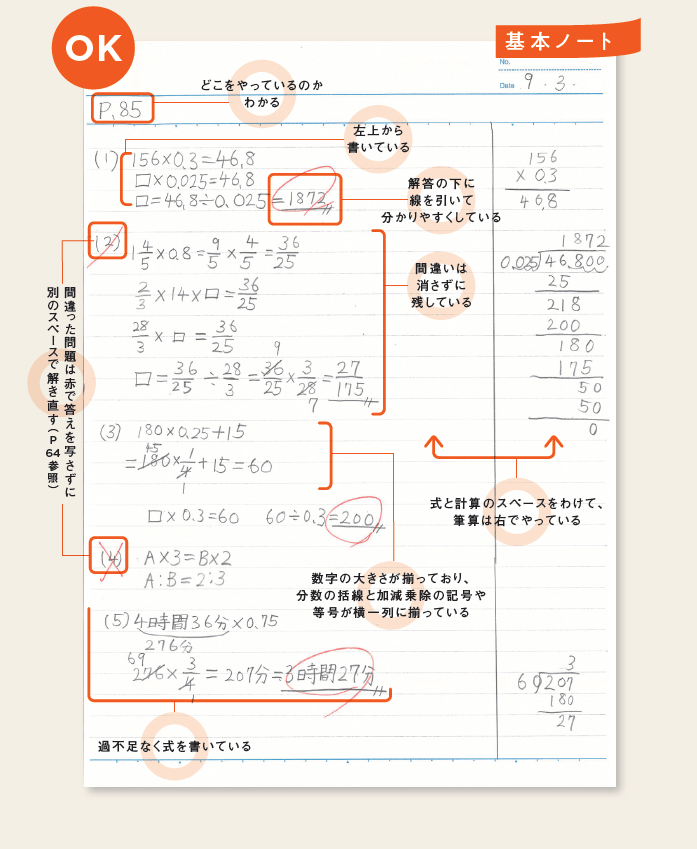 OK
基本ノート
No.
Date 9・3・
どこをやっているのか
わかる
P.85
左上から
書いている
(1) 156×0.3=46.8
□×0.025=46.8
□=46.8÷0.025=1872
解答の下に
線を引いて
分かりやすくしている
156
×0.3
46.8
(2) 1 4/5×0.8=9/5×4/5=36/25
2/3×14×□=36/25
28/3×□=36/25
□=36/25÷28/3=36/25×3/28=27/175
9
7
間違いは
消さずに
残している
1872
0.025)46.800
25
218
200
180
175
50
50
0
間違った問題は赤で答えを写さずに
別のスペースで解き直す(P64参照)
(3) 180×0.25+15
=180×1/4+15=60
45
1
□×0.3=60 60÷0.3=200
式と計算のスペースをわけて、
筆算は右でやっている
(4) A×3=B×2
A:B=2:3
数字の大きさが揃っており、
分数の括線と加減乗除の記号や
等号が横一列に揃っている
(5) 4時間36分×0.75
276分
69
276×3/4=207分=3時間27分
1
3
60)207
180
27
過不足なく式を書いている